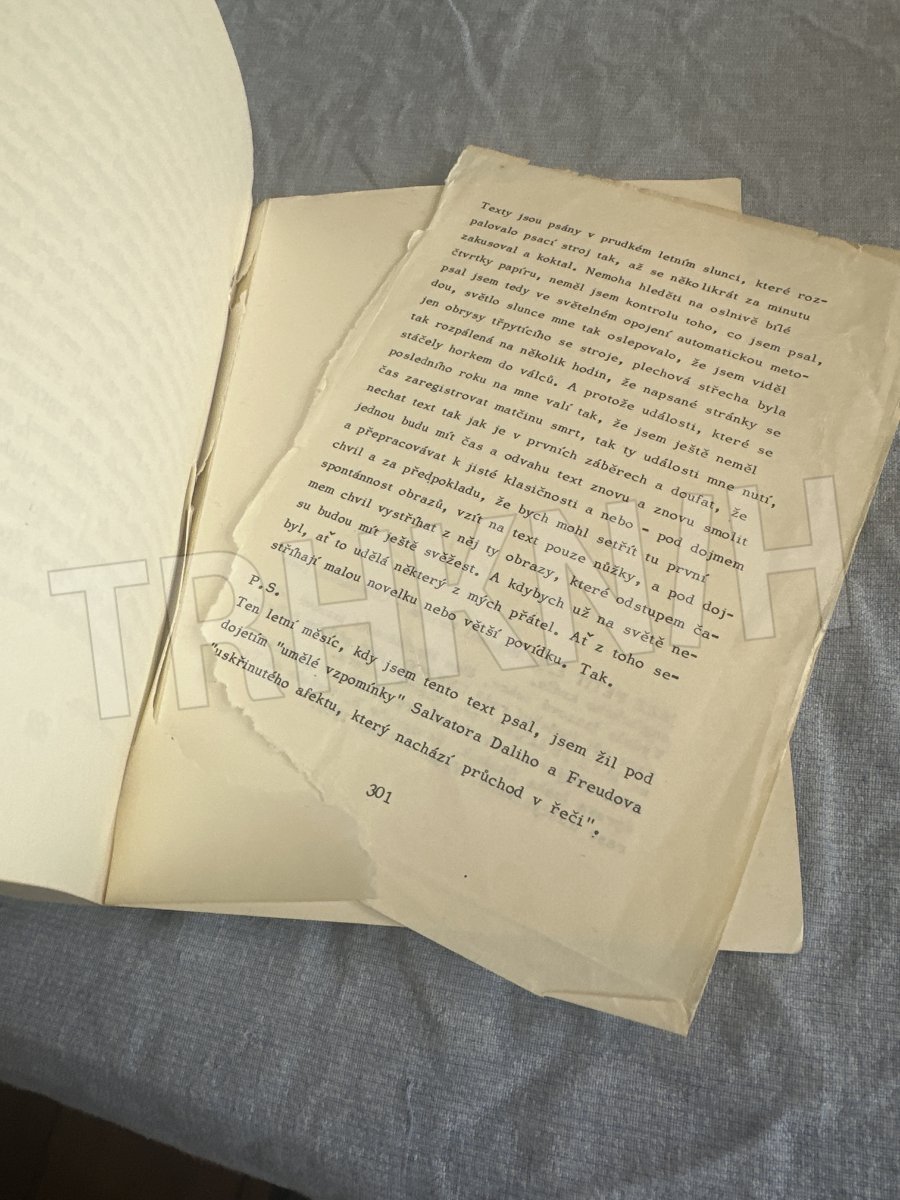 Texty jsou psány v prudkém letním slunci, které roz-
palovalo psací stroj tak, až se několikrát za minutu
zakusoval a koktal. Nemoha hleděti na oslnivě bílé
čtvrtky papíru, neměl jsem kontrolu toho, co jsem psal,
psal jsem tedy ve světelném opojení automatickou meto-
dou, světlo slunce mne tak oslepovalo, že jsem viděl
jen obrysy třpytícího se stroje, plechová střecha byla
tak rozpálená na několik hodin, že napsané stránky se
stáčely horkem do válců. A protože události, které se
posledního roku na mne valí tak, že jsem ještě neměl
čas zaregistrovat matčinu smrt, tak ty události mne nutí,
nechat text tak jak je v prvních záběrech a doufat, že
jednou budu mít čas a odvahu text znovu a znovu smolit
a přepracovávat k jisté klasičnosti a nebo - pod dojmem
chvil a za předpokladu, že bych mohl setřít tu první
spontánnost obrazů, vzít na text pouze nůžky, a pod doj-
mem chvil vystříhat z něj ty obrazy, které odstupem ča-
su budou mít ještě svěžest. A kdybych už na světě ne-
byl, ať to udělá některý z mých přátel. Ať z toho se-
stříhají malou novelku nebo větší povídku. Tak.
P.S.
Ten letní měsíc, kdy jsem tento text psal, jsem žil pod
dojetím "umělé vzpomínky" Salvatora Daliho a Freudova
"uskřinutého afektu, který nachází průchod v řeči".
301
TRHKNIH